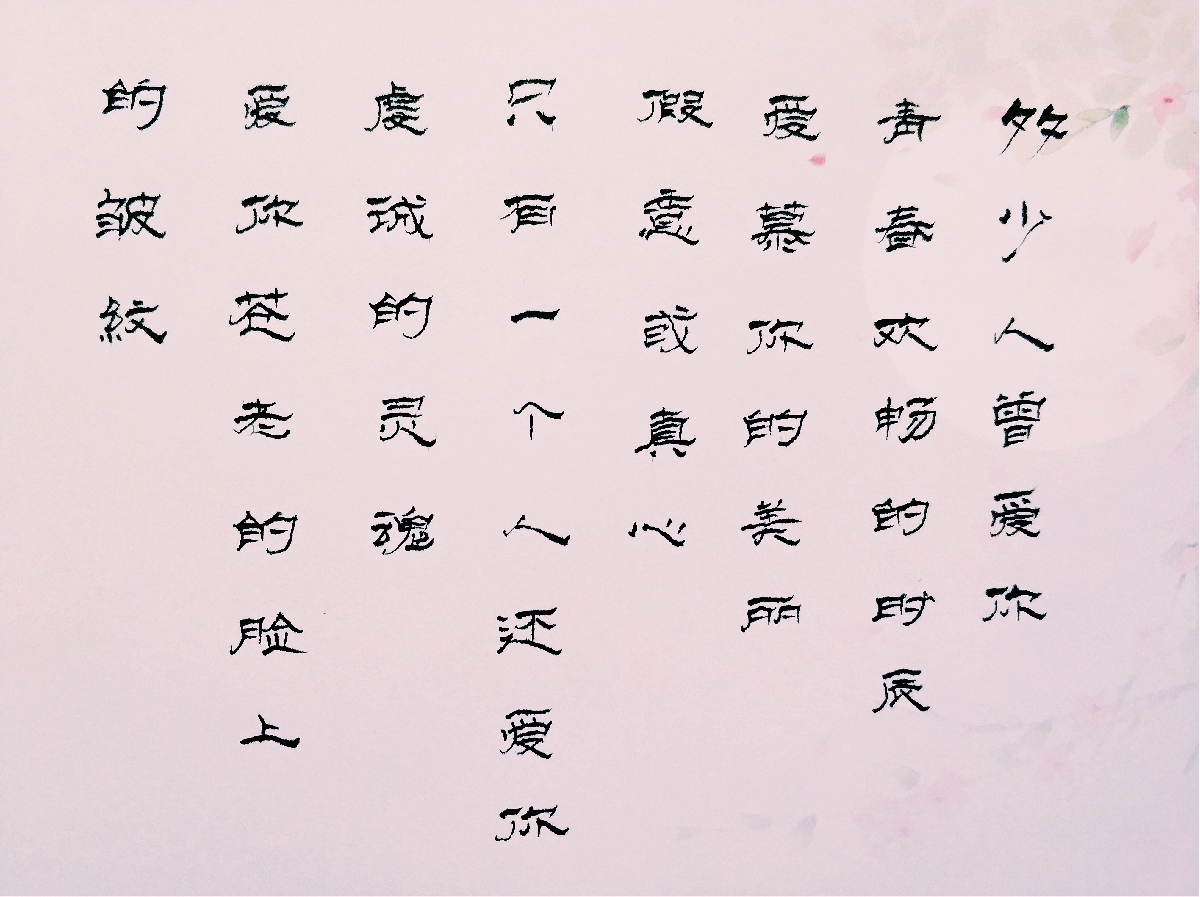 多少人曾爱你
青春欢畅的时辰
爱慕你的美丽
假意或真心
只有一个人还爱你
虔诚的灵魂
爱你苍老的脸上
的皱紋